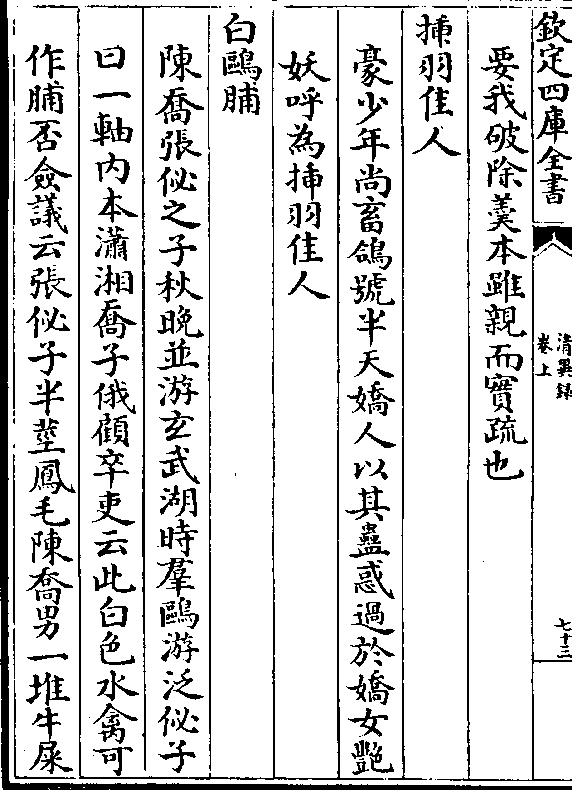 欽定四庫全書
清異錄
卷上
七十三
要我破除羹本雖親而實疏也
揷羽佳人
豪少年尚畜鴿號半天嬌人以其蠱惑過於嬌女豔
妖呼為揷羽佳人
白鷗脯
陳喬張佖之子秋晚並游玄武湖時羣鷗游泛佖子
曰一軸内本瀟湘喬子俄顧卒吏云此白色水禽可
作脯否僉議云張佖子半莖鳳毛陳喬男一堆牛屎